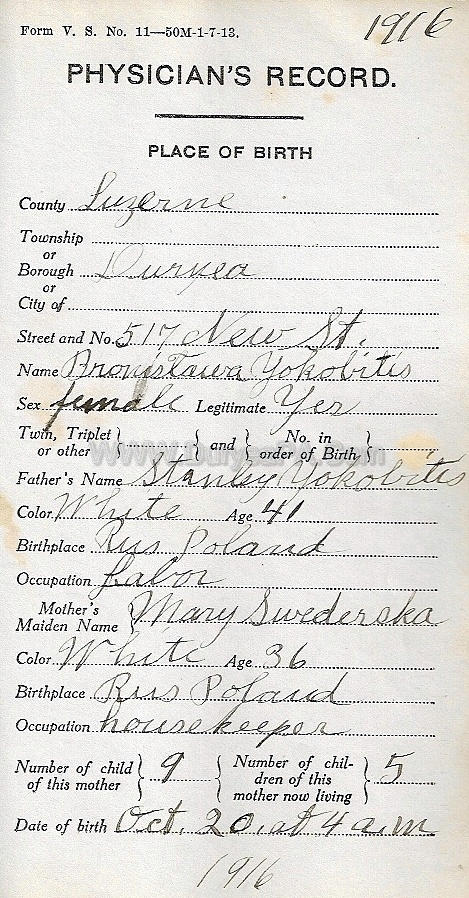 Form V. S. No. 11—50M-1-7-13.
1916
PHYSICIAN'S RECORD.
PLACE OF BIRTH
County Luzerne
Township
or
Borough Duryea
or
City of
Street and No. 517 New St.
Name Bronislawa Yokobitis
Sex female Legitimate Yes
Twin, Triplet or other } { and } No. in order of Birth }
Father's Name Stanley Yokobitis
Color White Age 41
Birthplace Rus Poland
Occupation Labor
Mother's Maiden Name } Mary Swederska
Color White Age 36
Birthplace Rus Poland
Occupation housekeeper
Number of child of this mother } 9 { Number of children of this mother now living } 5
Date of birth Oct. 20. at 4 a.m
1916